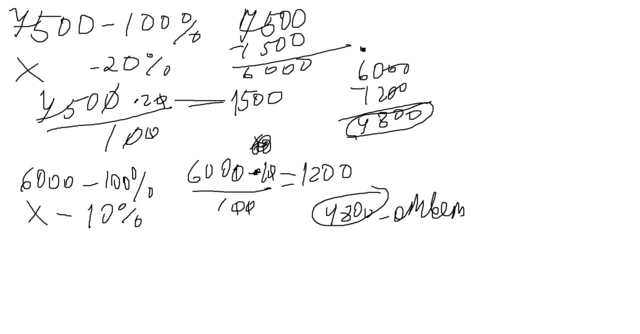 7500 - 100%
7500
-1500
6000
x - 20%
7500 · 20 / 100 = 1500
6000
-1200
4800
6000 - 100%
6000 · 10 / 100 = 1200
x - 10%
4800 - ответ